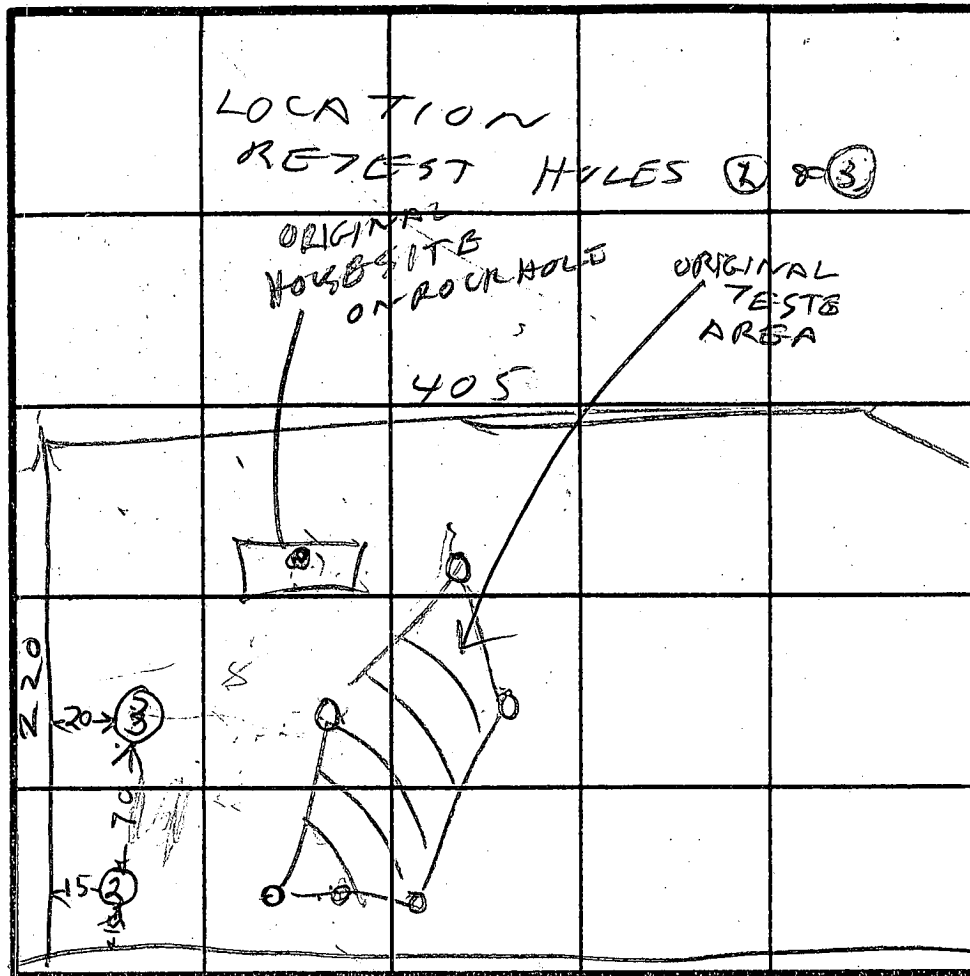 LOCATION
RETEST HOLES 2 & 3
ORIGINAL
HOUSESITE
ON ROCK HOLE
ORIGINAL
TESTS
AREA
405
220
20
3
70
15
2